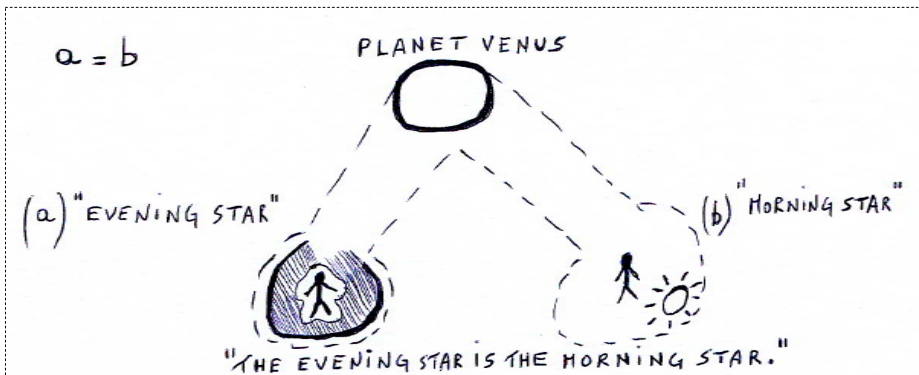 a = b
PLANET VENUS
(a) "EVENING STAR"
(b) "MORNING STAR"
"THE EVENING STAR IS THE MORNING STAR."